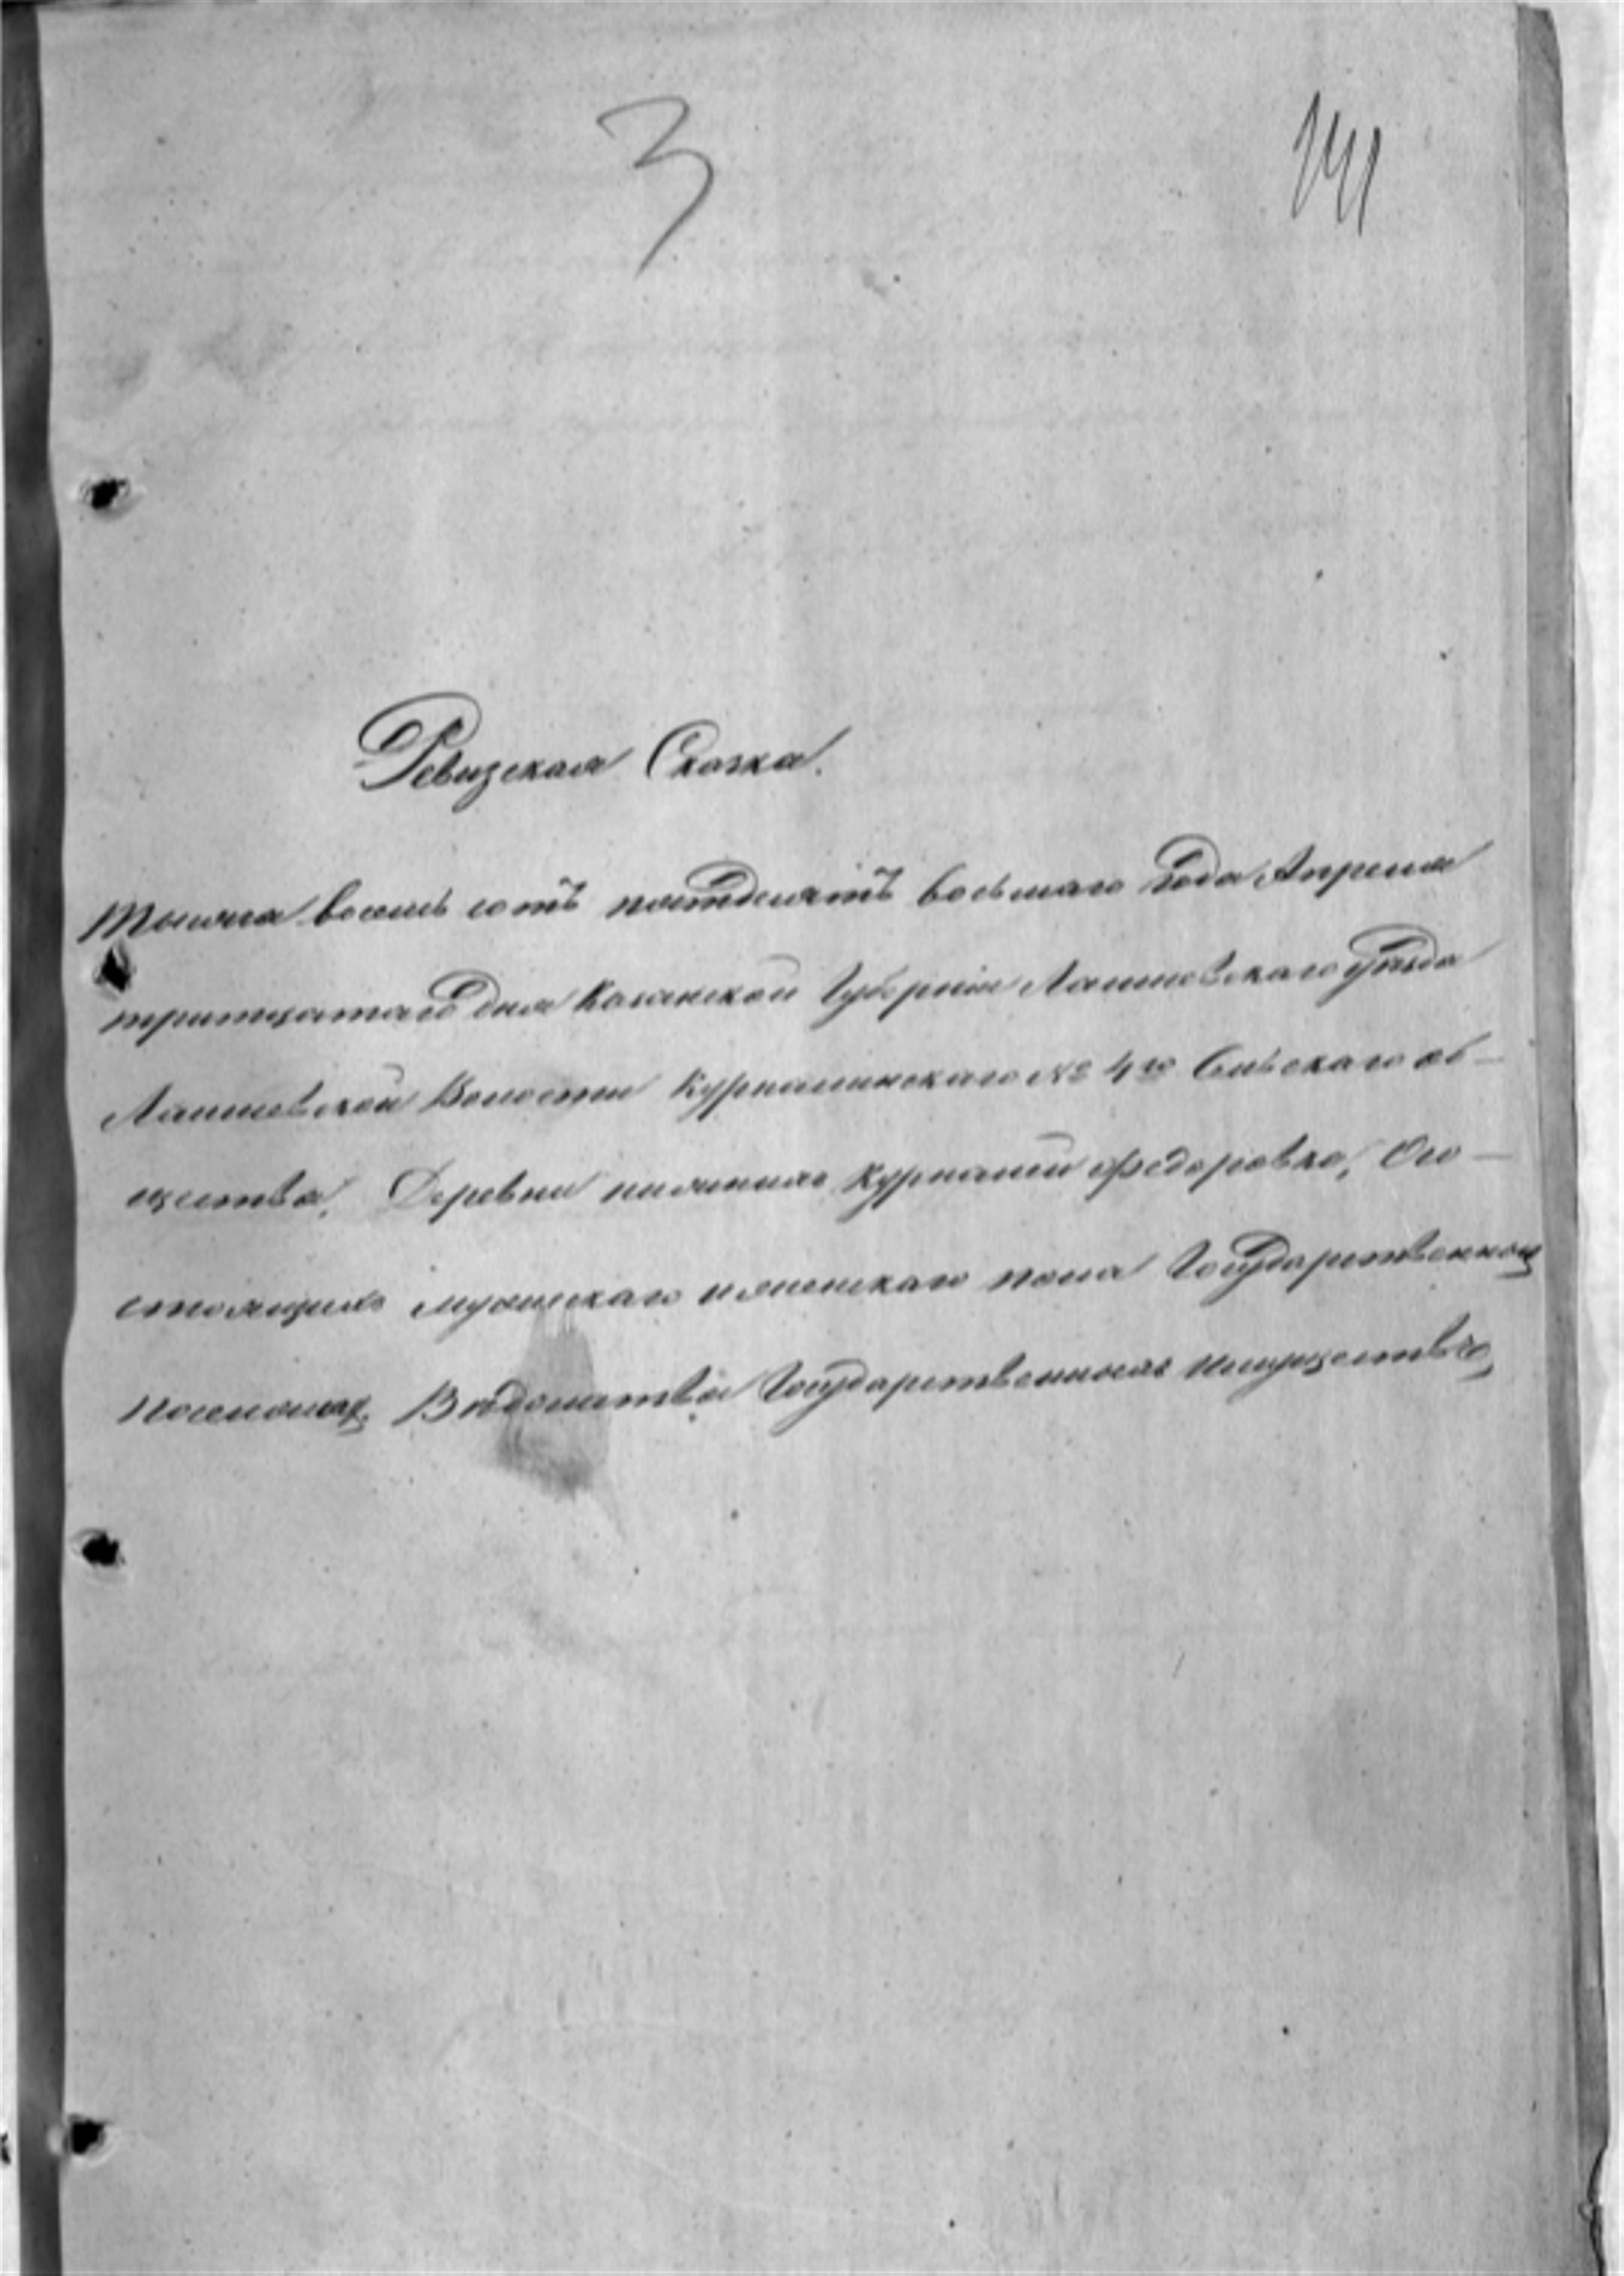 3
141
Ревизская Сказка.
Тысяча восемь сотъ пятдесятъ восьмаго Года Апреля
тритцатаго дня Казанской Губерніи Лаишевскаго уѣзда
Лаишевской Волости Курналинскаго № 4го Сельскаго об-
щества, Деревни Курнали Федоровка, О со-
стоящихъ мужескаго и женскаго пола Государственных
Поселянах. Вѣдомства Государственныхъ Имуществъ,